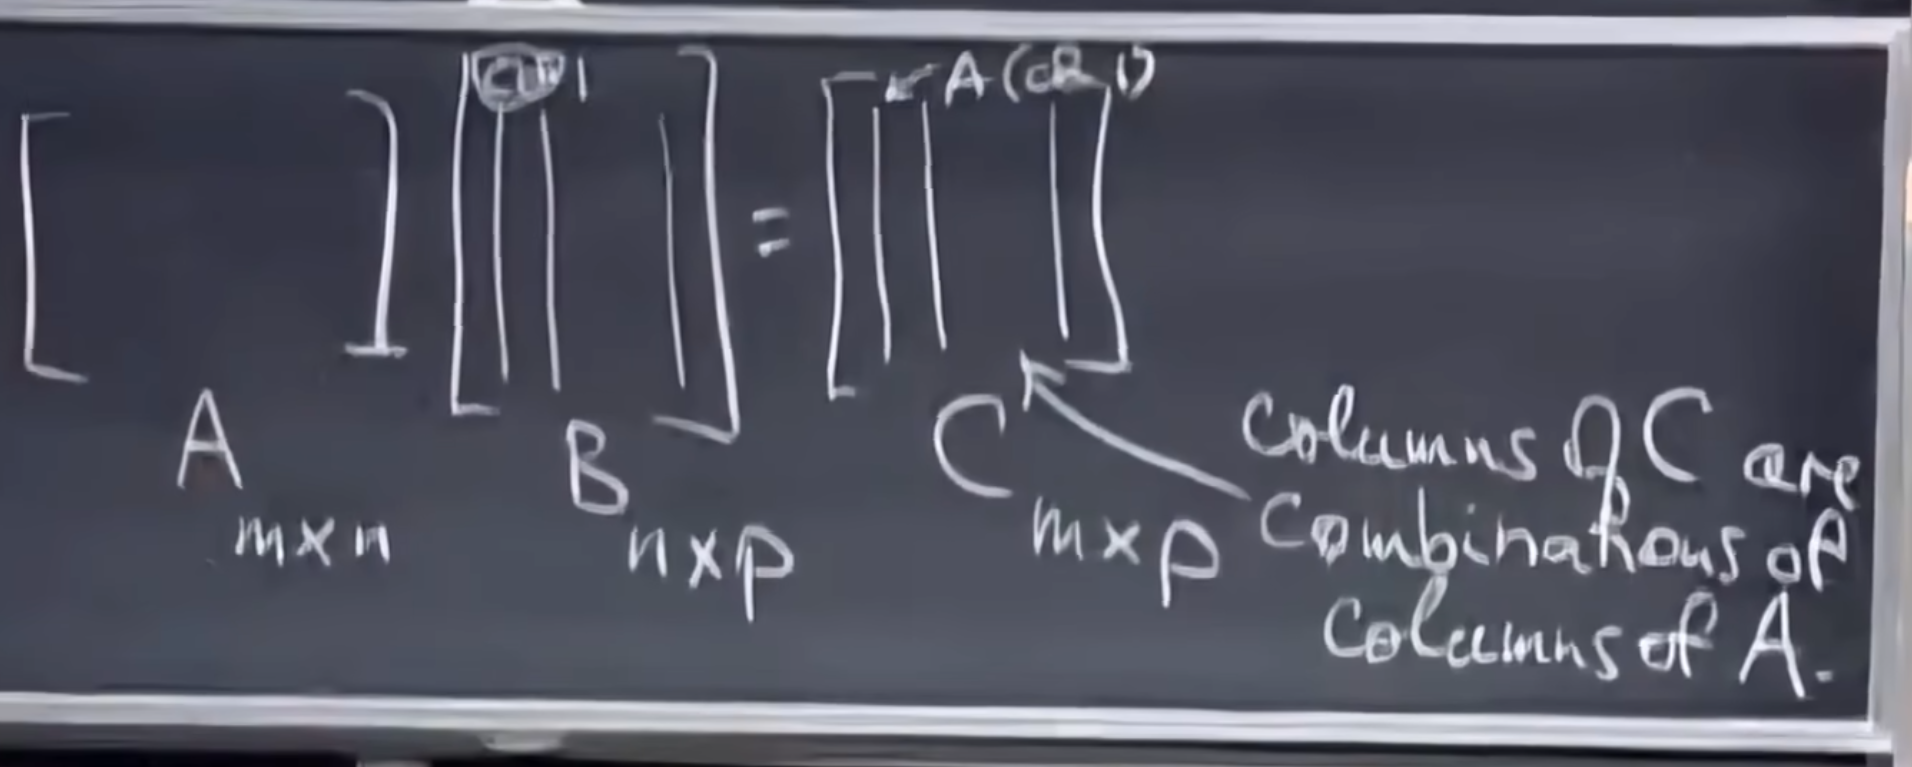 col 1
A (col 1)
=
A
m x n
B
n x p
C
m x p
columns of C are
combinations of
columns of A.